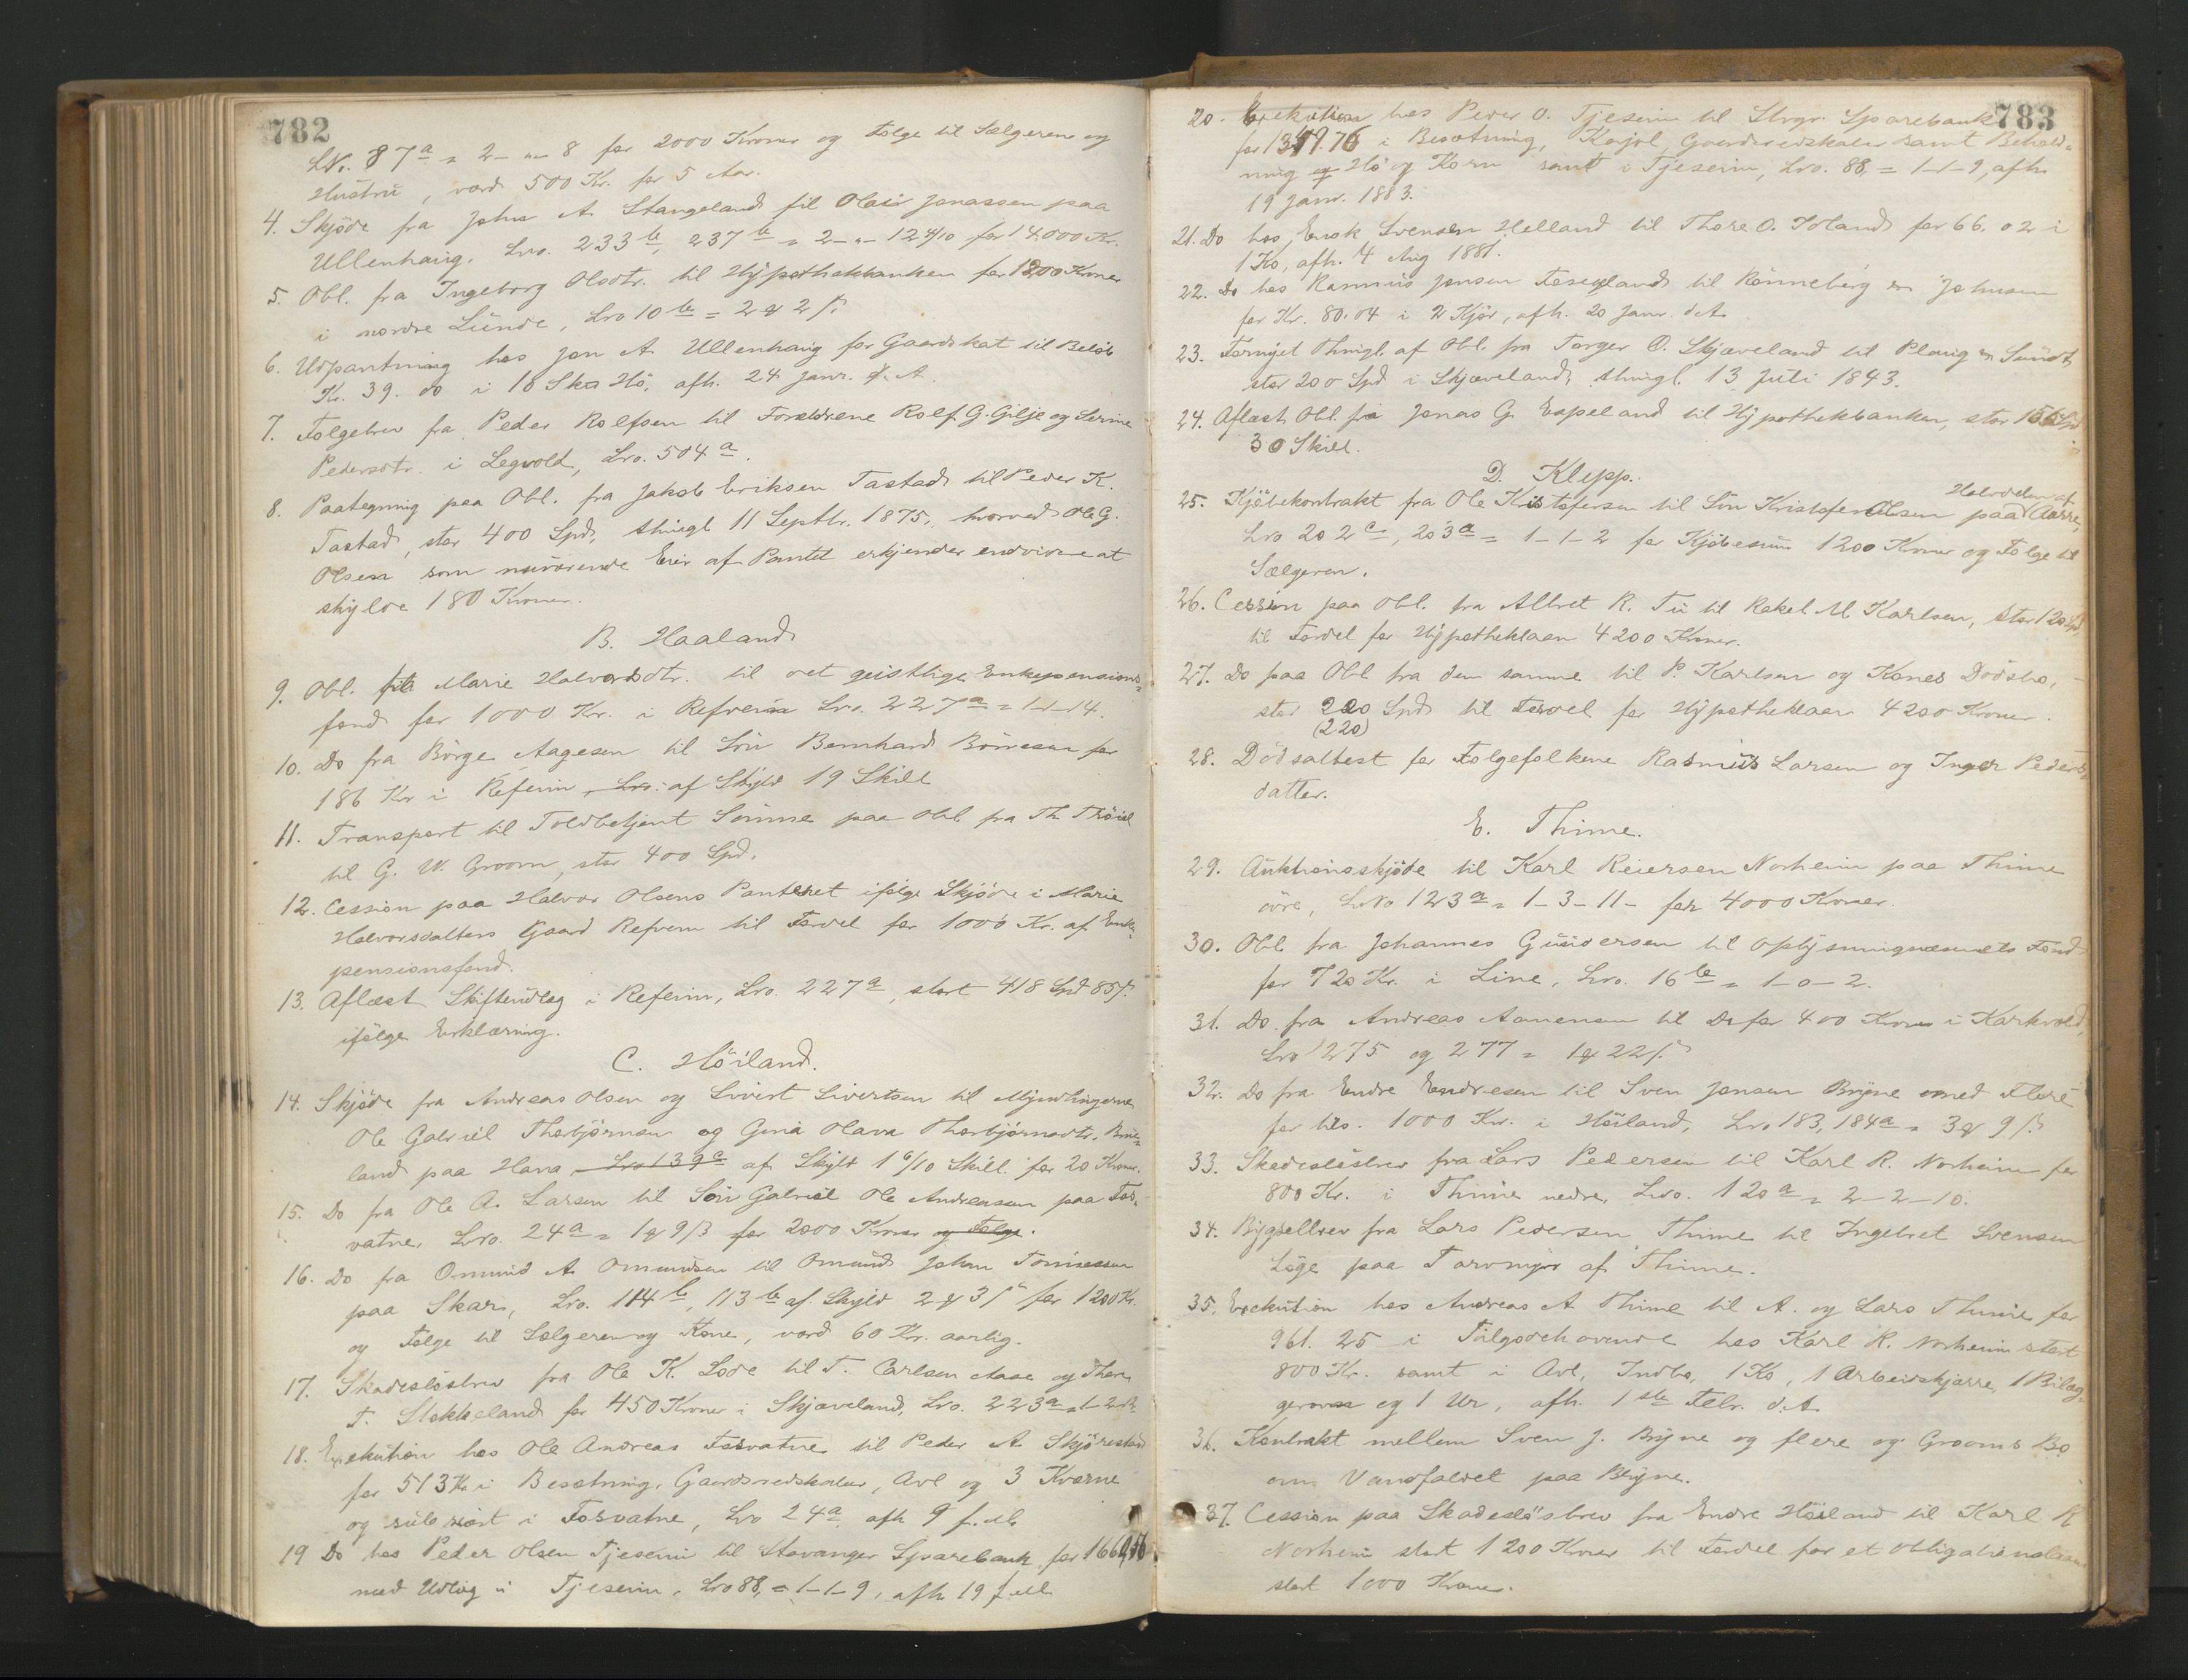 782
LNr. 87a = 2 - " - 8 for 2000 Kroner og Folge til Sælgeren og
Hustru, værd 500 Kr. for 5 Aar.
4. Skjöde fra John A. Stangeland til Olaus Jonassen paa
Ullenhaug. Lno. 233b, 237b = 2 - " - 12 4/10 for 14.000 Kr.
5. Obl. fra Ingeborg Olsdtr. til Hypothekbanken for 1200 Kroner
i nordre Lunde, Lno 10b = 2 & 2 ß
6. Udpantning hos Jon A. Ullenhaug for Gaardskat til Beløb
Kr. 39. 00 i 10 Skr Hö, afh. 24 Janr. d. A.
7. Folgebrev fra Peder Rolfsen til Forældrene Rolf G. Gilje og Serine
Pedersdtr. i Legvold, Lno. 504a.
8. Paategning paa Obl. fra Jakob Eriksen Tastad til Peder K.
Tastad, stor 400 Spd, thingl 11 Septbr. 1875, hvorved Ole G.
Olsen som nuværende Eier af Pantet erkjender endvidere at
skylde 180 Kroner.
B. Haaland
9. Obl. fra Marie Halvorsdtr. til det geistlige Enkepensions-
fond for 1000 Kr. i Refveim Lno. 227a = 1-1-14.
10. Do fra Börge Aagesen til Sön Bernhard Börresen for
186 Kr i Refeim, Lno: af Skyld 19 Skill
11. Transport til Toldbetjent Sömme paa Obl fra Th. Thöisel
til G. W. Groom, stor 400 Spd.
12. Cession paa Halvor Olsens Panteret ifölge Skjöde i Marie
Halvorsdatters Gaard Refveim til Fordel for 1000 Kr. af Enke-
pensionsfond.
13. Aflæst Skifteudlæg i Refeim, Lno. 227a, stort 418 Spd 85 ß
ifölge Erklæring.
C. Höiland.
14. Skjöde fra Andreas Olsen og Sivert Sivertsen til Myndlingerne
Ole Gabriel Thorbjörnsen og Gina Olava Thorbjörnsdtr. Brue-
land paa Hana, Lno 139a af Skyld 1 6/10 Skill. for 20 Kroner.
15. Do fra Ole A. Larsen til Sön Gabriel Ole Andreassen paa Fos-
vatne, Lno. 24a = 1 & 9 ß for 2000 Kroner og Folge.
16. Do fra Omund A. Omundsen til Omund Johan Tönnessen
paa Skar, Lno. 114b, 113b af Skyld 2 & 3 ß for 1200 Kr.
og Folge til Sælgeren og Kone, værd 60 Kr. aarlig.
17. Skadeslösbrev fra Ole K. Lode til T. Carlsen Aase og Thore
T. Stokkeland for 450 Kroner i Skjæveland, Lno. 223a = 1-2-12
18. Exekution hos Ole Andreas Fosvatne til Peder A. Skjörestad
for 513 Kr i Besætning, Gaardsredskaber, Avl og 3 Kværne
og i Fosvatne, Lno 24a, afh 9 f. M.
19 Do hos Peder Olsen Tjeseim til Stavanger Sparebank for
med Udlæg i Tjeseim, Lno 88, = 1-1-9, afh. 19 f. M.
783
20. Exekution hos Peder O. Tjeseim til Stvgr. Sparebank
for 1349.76 i Besætning, Karjol, Gaardsredskaber samt Behold-
ning af Hö og Korn samt i Tjeseim, Lno. 88, = 1-1-9, afh.
19 Janr. 1883.
21. Do hos Enok Svensen Helland til Thore O. Joland for 66. 02 i
1 Ko, afh. 4 Aug 1881.
22. Do hos Rasmus Jonsen Foseland til Rönneberg & Johnsen
for Kr. 80.04 i 2 Kjör, afh. 20 Janr. d. A.
23. Fornyet Thingl. af Obl. fra Torger O. Skjæveland til Ploug & Sundt,
stor 200 Spd i Skjæveland, thingl. 13 Juli 1843.
24. Aflæst Obl. fra Jonas G. Espeland til Hypothekbanken, stor 156 Spd
30 Skill.
D. Klepp.
25. Kjöbekontrakt fra Ole Kristofersen til Sön Kristofer Olsen paa Halvdelen af Aarre,
Lno 202c, 203a = 1-1-2 for Kjöbesum 1200 Kroner og Folge til
Sælgeren.
26. Cession paa Obl. fra Albret R. Tu til Rakel M Karlsen, stor 120 Spd,
til Fordel for Hypotheklaan 4200 Kroner.
27. Do paa Obl fra den samme til P. Karlsen og Kones Dödsbo, -
stor 220 Spd til Fordel for Hypotheklaan 4200 Kroner.
(220)
28. Dödsattest for Folgefolkene Rasmus Larsen og Inger Peders-
datter.
E. Thime.
29. Auktionsskjöde til Karl Reiersen Norheim paa Thime
övre, LNo 123a = 1-3-11- for 4000 Kroner.
30. Obl. fra Johannes Gundersen til Oplysningsvæsenets Fond
for 720 Kr. i Line, Lno. 16b = 1-0-2.
31. Do. fra Andreas Aanensen til Do for 400 Kroner i Karkvold,
Lno 275 og 277 = 1 & 22 ß
32. Do fra Endre Endresen til Sven Jonsen Bryne med Flere
for tils. 1000 Kr. i Höiland, Lno 183, 184a = 3 & 9 ß
33. Skadeslösbrev fra Lars Pedersen til Karl R. Norheim for
800 Kr. i Thime nedre, Lno. 120a = 2-2-10.
34. Bygselbrev fra Lars Pedersen Thime til Ingebret Svensen
Löge paa Torvmyr af Thime.
35. Exekution hos Andreas A Thime til A. og Lars Thime for
961. 25 i Tilgodehavende hos Karl R. Norheim stort
800 Kr. samt i Avl, Indbo, 1 Ko, 1 Arbeidskjærre, 1 Bilæg-
gerovn og 1 Ur, afh. 1ste Febr. d. A.
36. Kontrakt mellem Sven J. Bryne og flere og Grooms Bo
om Vandfaldet paa Bryne.
37. Cession paa Skadeslösbrev fra Endre Höiland til Karl R
Norheim stort 1200 Kroner til Fordel for et Obligationslaan
stort 1000 Kroner.